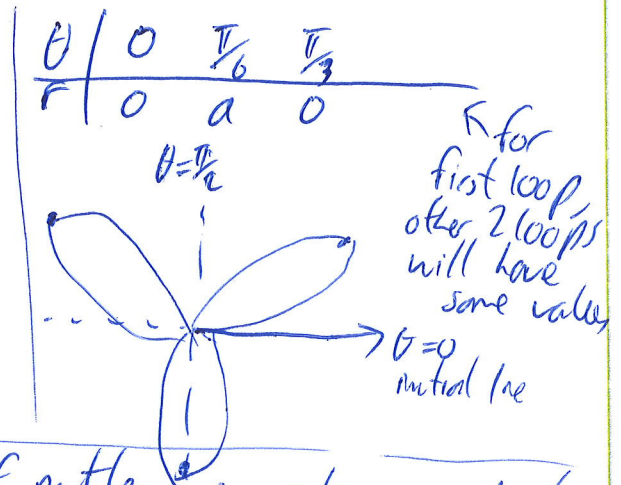 θ 0 π/6 π/3
r 0 a 0
θ=π/2
↖ for
first loop,
other 2 loops
will have
same values
θ=0
initial line